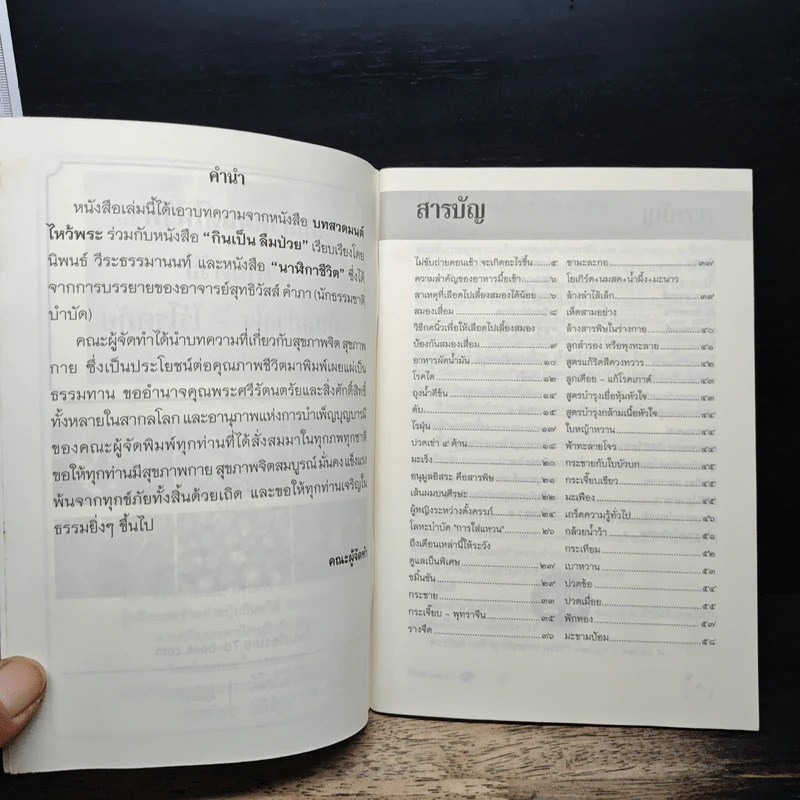 คำนำ
หนังสือเล่มนี้ได้เอาบทความจากหนังสือ บทสวดมนต์
ไหว้พระ ร่วมกับหนังสือ “กินเป็น ลืมป่วย” เรียบเรียงโดย
นิพนธ์ วีระธรรมานนท์ และหนังสือ “นาฬิกาชีวิต” ซึ่งได้
จากการบรรยายของอาจารย์สุทธิวัสส์ คำภา (นักธรรมชาติ
บำบัด)
คณะผู้จัดทำได้นำบทความที่เกี่ยวกับสุขภาพจิต สุขภาพ
กาย ซึ่งเป็นประโยชน์ต่อคุณภาพชีวิตมาพิมพ์เผยแผ่เป็น
ธรรมทาน ขออำนาจคุณพระศรีรัตนตรัยและสิ่งศักดิ์สิทธิ์
ทั้งหลายในสากลโลก และอานุภาพแห่งการบำเพ็ญบุญบารมี
ของคณะผู้จัดพิมพ์ทุกท่านที่ได้สั่งสมมาในทุกภพทุกชาติ
ขอให้ทุกท่านมีสุขภาพกาย สุขภาพจิตสมบูรณ์ มั่นคง แข็งแรง
พ้นจากทุกข์ภัยทั้งสิ้นด้วยเถิด และขอให้ทุกท่านเจริญใน
ธรรมยิ่งๆ ขึ้นไป
คณะผู้จัดทำ
สารบัญ
ไม่ขับถ่ายตอนเช้า จะเกิดอะไรขึ้น.....๕
ความสำคัญของอาหารมื้อเช้า.....๖
สาเหตุที่เลือดไปเลี้ยงสมองได้น้อย.....๖
สมองเสื่อม.....๘
วิธีกดนิ้วเพื่อให้เลือดไปเลี้ยงสมอง
ป้องกันสมองเสื่อม.....๙
อาหารผัดน้ำมัน.....๑๐
โรคไต.....๑๒
ถุงน้ำดีข้น.....๑๔
ตับ.....๑๕
ไรฝุ่น.....๑๗
ปวดเข่า ๔ ด้าน.....๑๘
มะเร็ง.....๒๐
อนุมูลอิสระ คือสารพิษ.....๒๑
เส้นผมบนศีรษะ.....๒๒
ผู้หญิงระหว่างตั้งครรภ์.....๒๔
โลหะบำบัด "การใส่แหวน".....๒๖
ถึงเดือนเหล่านี้ให้ระวัง
ดูแลเป็นพิเศษ.....๒๗
ขมิ้นชัน.....๒๙
กระชาย.....๓๓
กระเจี๊ยบ - พุทราจีน.....๓๕
รางจืด.....๓๖
ชามะละกอ.....๓๗
โยเกิร์ต+นมสด+น้ำผึ้ง+มะนาว
ล้างลำไส้เล็ก.....๓๙
เห็ดสามอย่าง
ล้างสารพิษในร่างกาย.....๔๐
ลูกสำรอง หรือพุงทะลาย.....๔๑
สูตรแก้ริดสีดวงทวาร.....๔๒
ลูกเดือย - แก้โรคเกาต์.....๔๓
สูตรบำรุงเยื่อหุ้มหัวใจ.....๔๓
สูตรบำรุงกล้ามเนื้อหัวใจ.....๔๔
ใบหญ้าหวาน.....๔๔
ฟ้าทะลายโจร.....๔๔
กระชายกับใบบัวบก.....๔๔
กระเจี๊ยบเขียว.....๔๕
มะเฟือง.....๔๕
เกร็ดความรู้ทั่วไป.....๔๖
กล้วยน้ำว้า.....๕๑
กระเทียม.....๕๒
เบาหวาน.....๕๓
ปวดข้อ.....๕๔
ปวดเมื่อย.....๕๕
ฟักทอง.....๕๗
มะขามป้อม.....๕๘